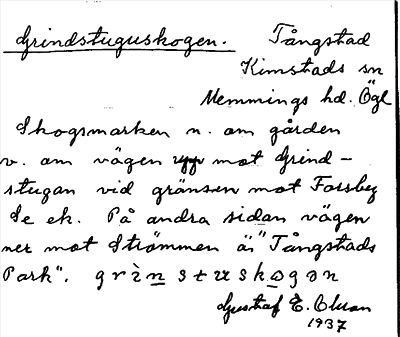 Grindstuguskogen. Tångstad
Kimstads sn
Memmings hd. Ögl
Skogsmarken n. om gården
v. om vägen mot Grind-
stugan vid gränsen mot Forsby
Se ek. På andra sidan vägen
ner mot Strömmen är "Tångstads
Park". grìnstuskogən
Gustaf E. Olson
1937